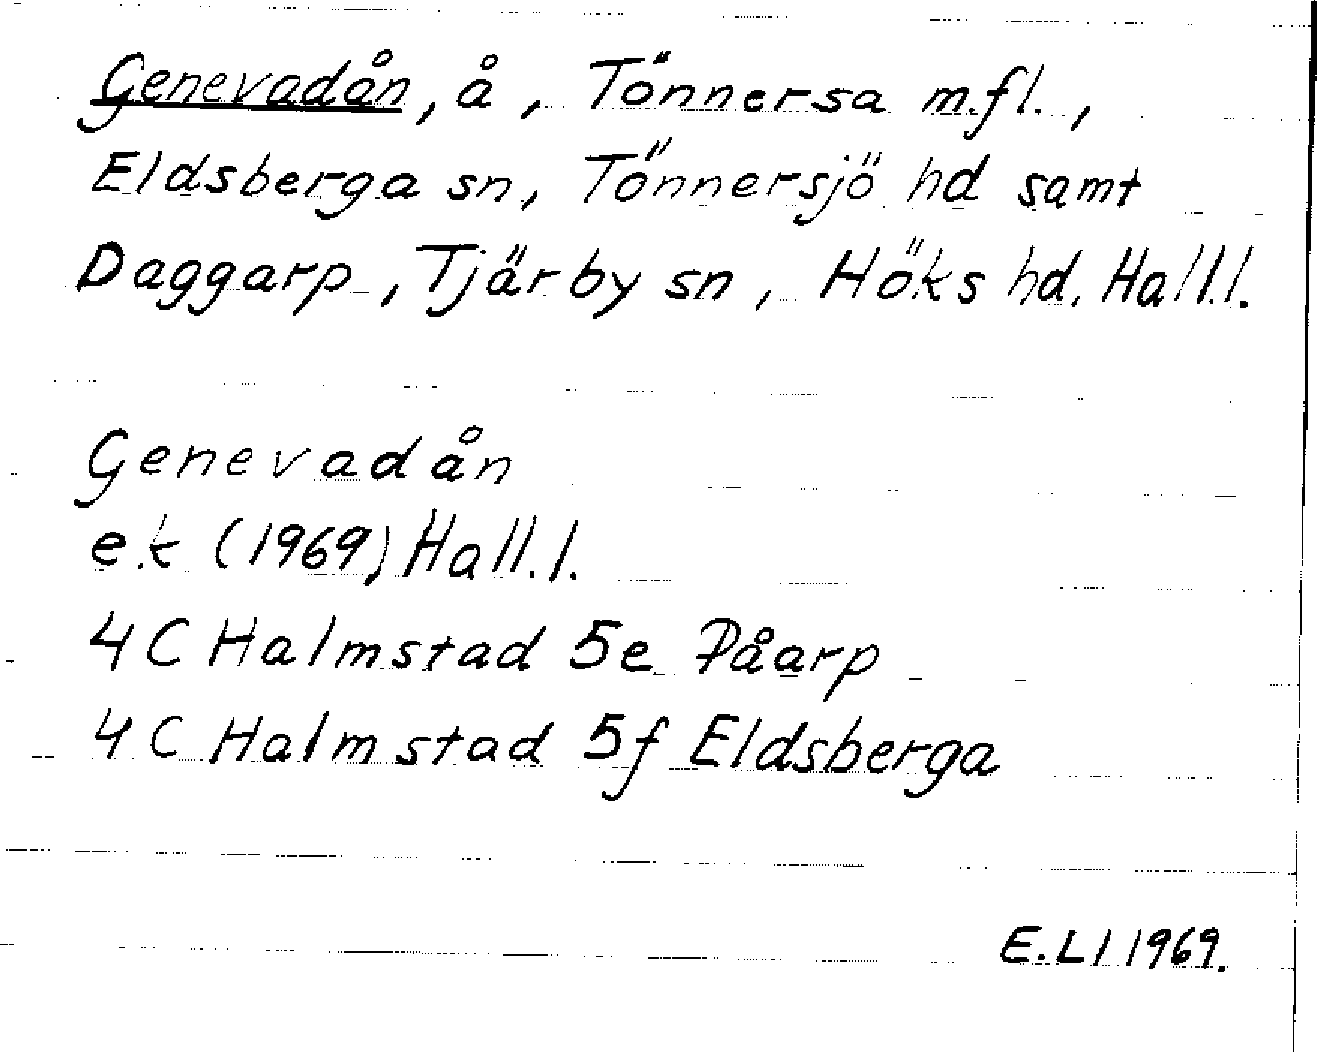 Genevadån, å, Tönnersa m.fl.,
Eldsberga sn, Tönnersjö hd samt
Daggarp, Tjärby sn, Höks hd, Hall.l.
Genevadån
e.k (1969) Hall.l.
4C Halmstad 5e Påarp
4C Halmstad 5f Eldsberga
E.Ll 1969.